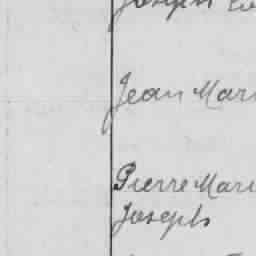 Joseph
Jean Mari
Pierre Mari
Joseph